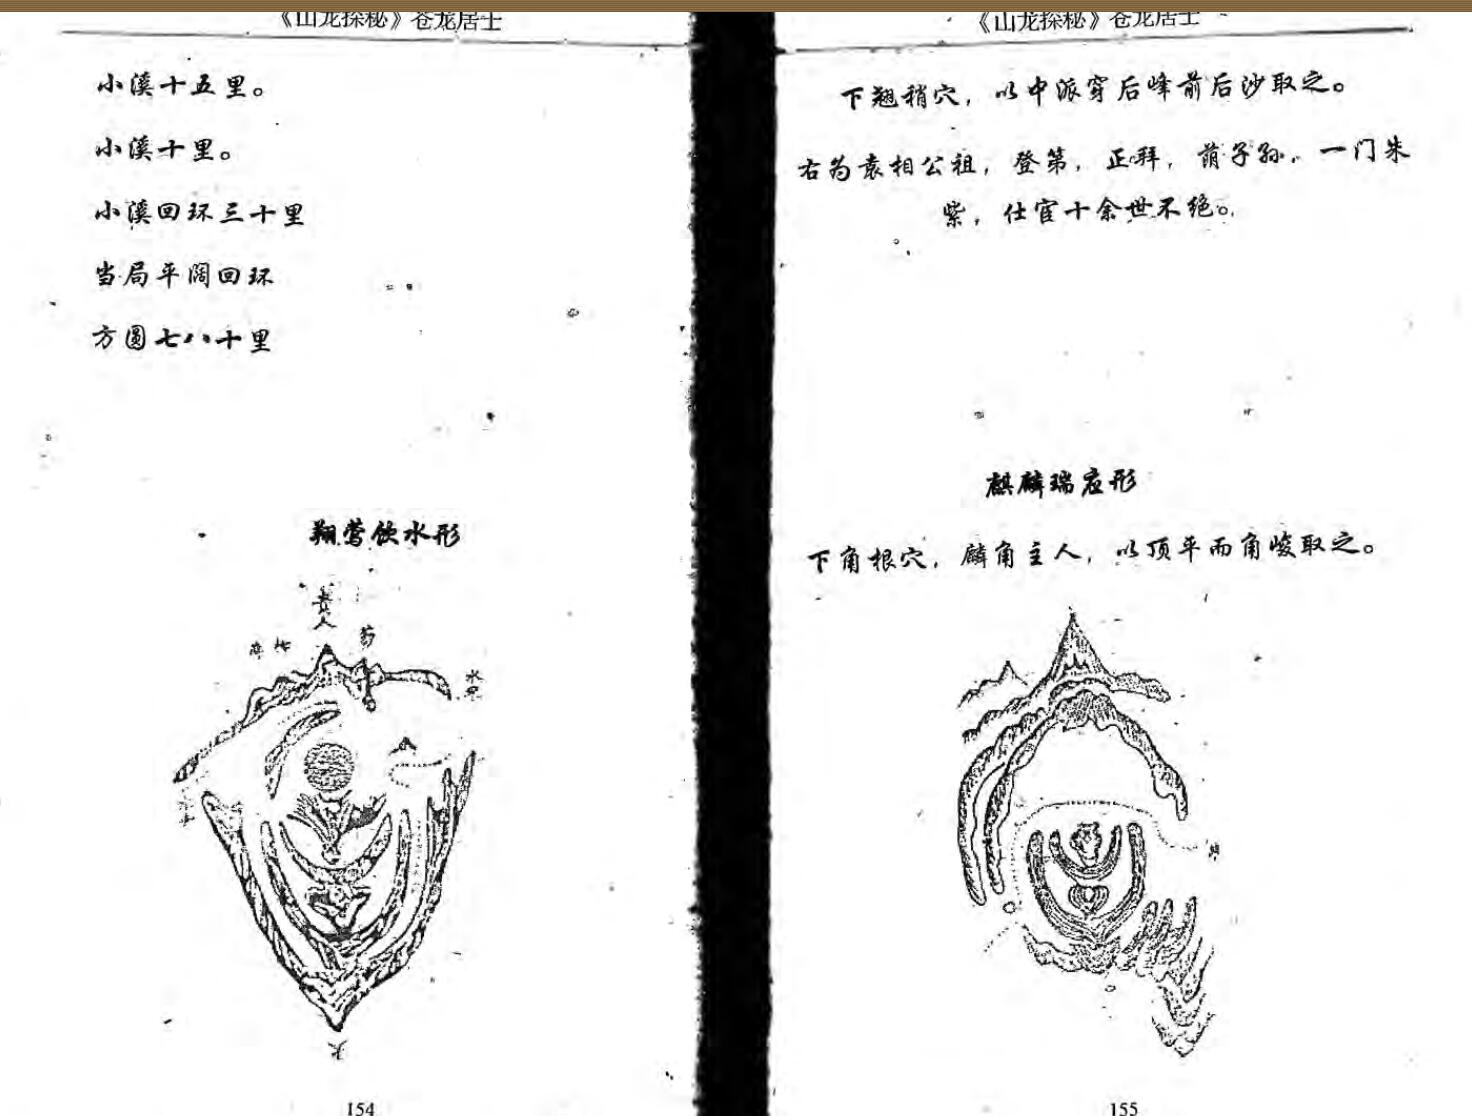 《山龙探秘》苍龙居士
小溪十五里。
小溪十里。
小溪回环三十里
当局平阔回环
方圆七八十里
翔莺饮水形
贵
人
水
154
《山龙探秘》苍龙居士
下翘稍穴，以中派穿后峰前后沙取之。
右为袁相公祖，登第，正拜，荫子孙。一门朱
紫，仕宦十余世不绝。
麒麟瑞应形
下角根穴，麟角主人，以顶平而角峻取之。
155